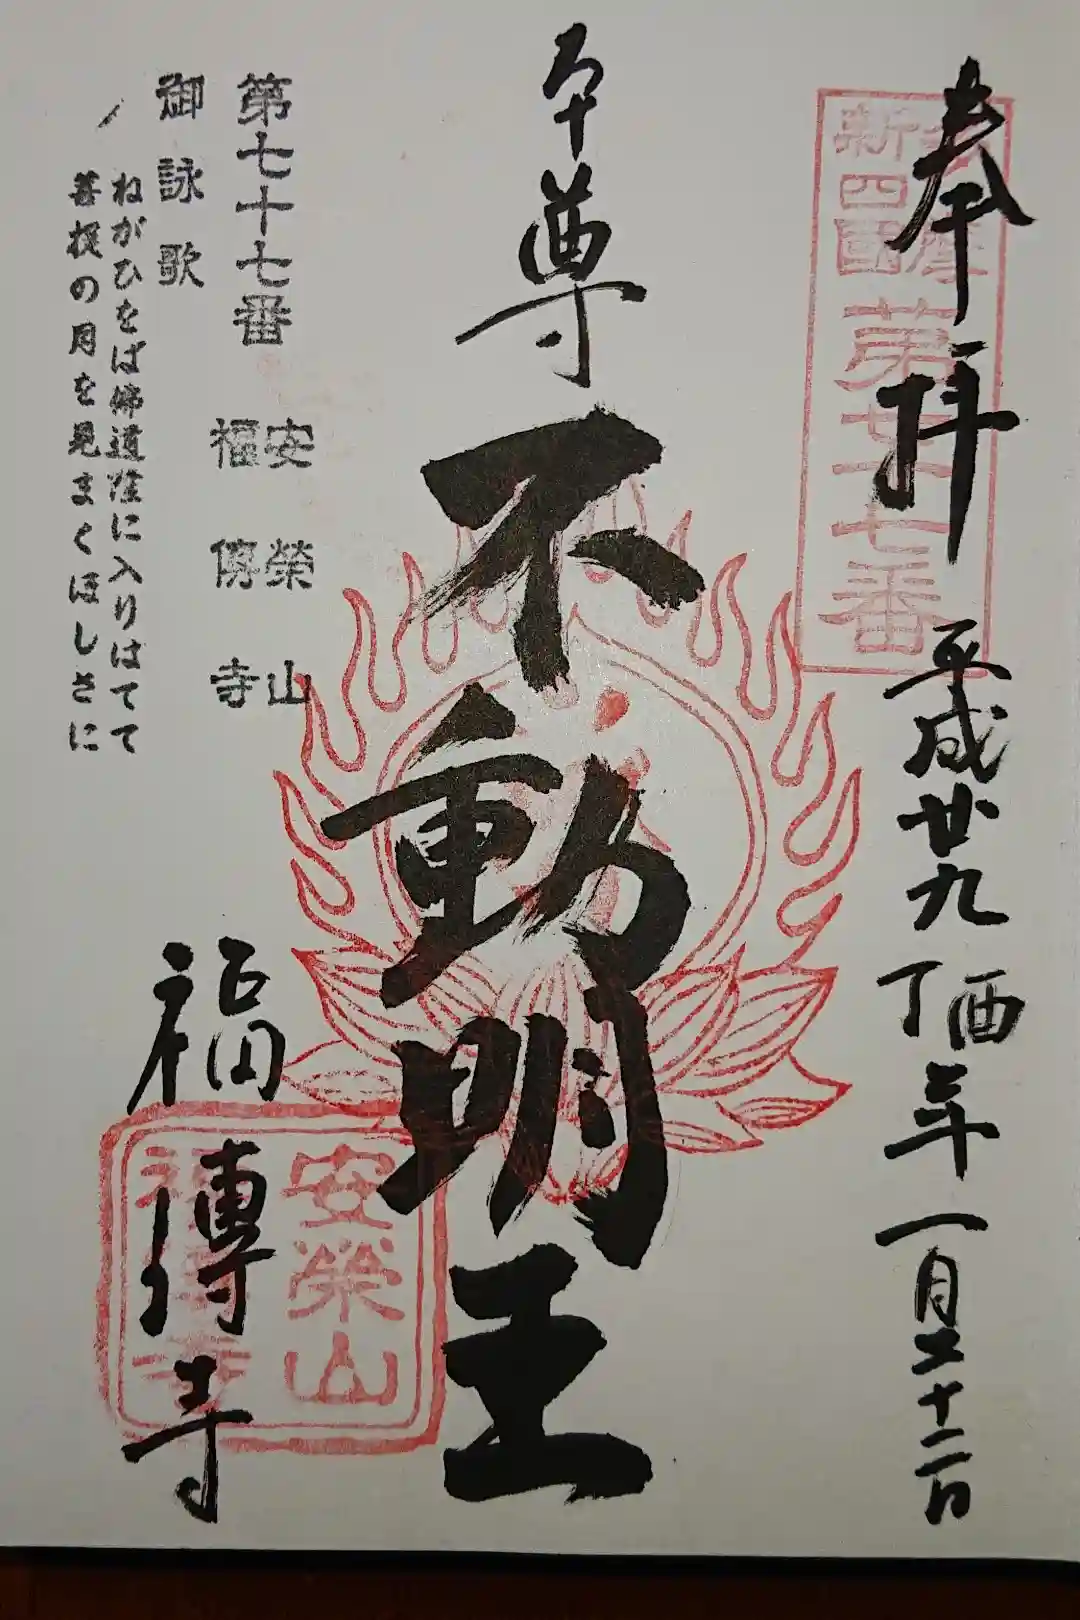 奉拝
平成廿九丁酉年一月二十二日
新四國
第七十七番
本尊
不動明王
第七十七番
安榮山
福傳寺
御詠歌
ねがひをば佛道に入りはてて
菩提の月を見まくほしさに
福傳寺
安榮山
福傳寺